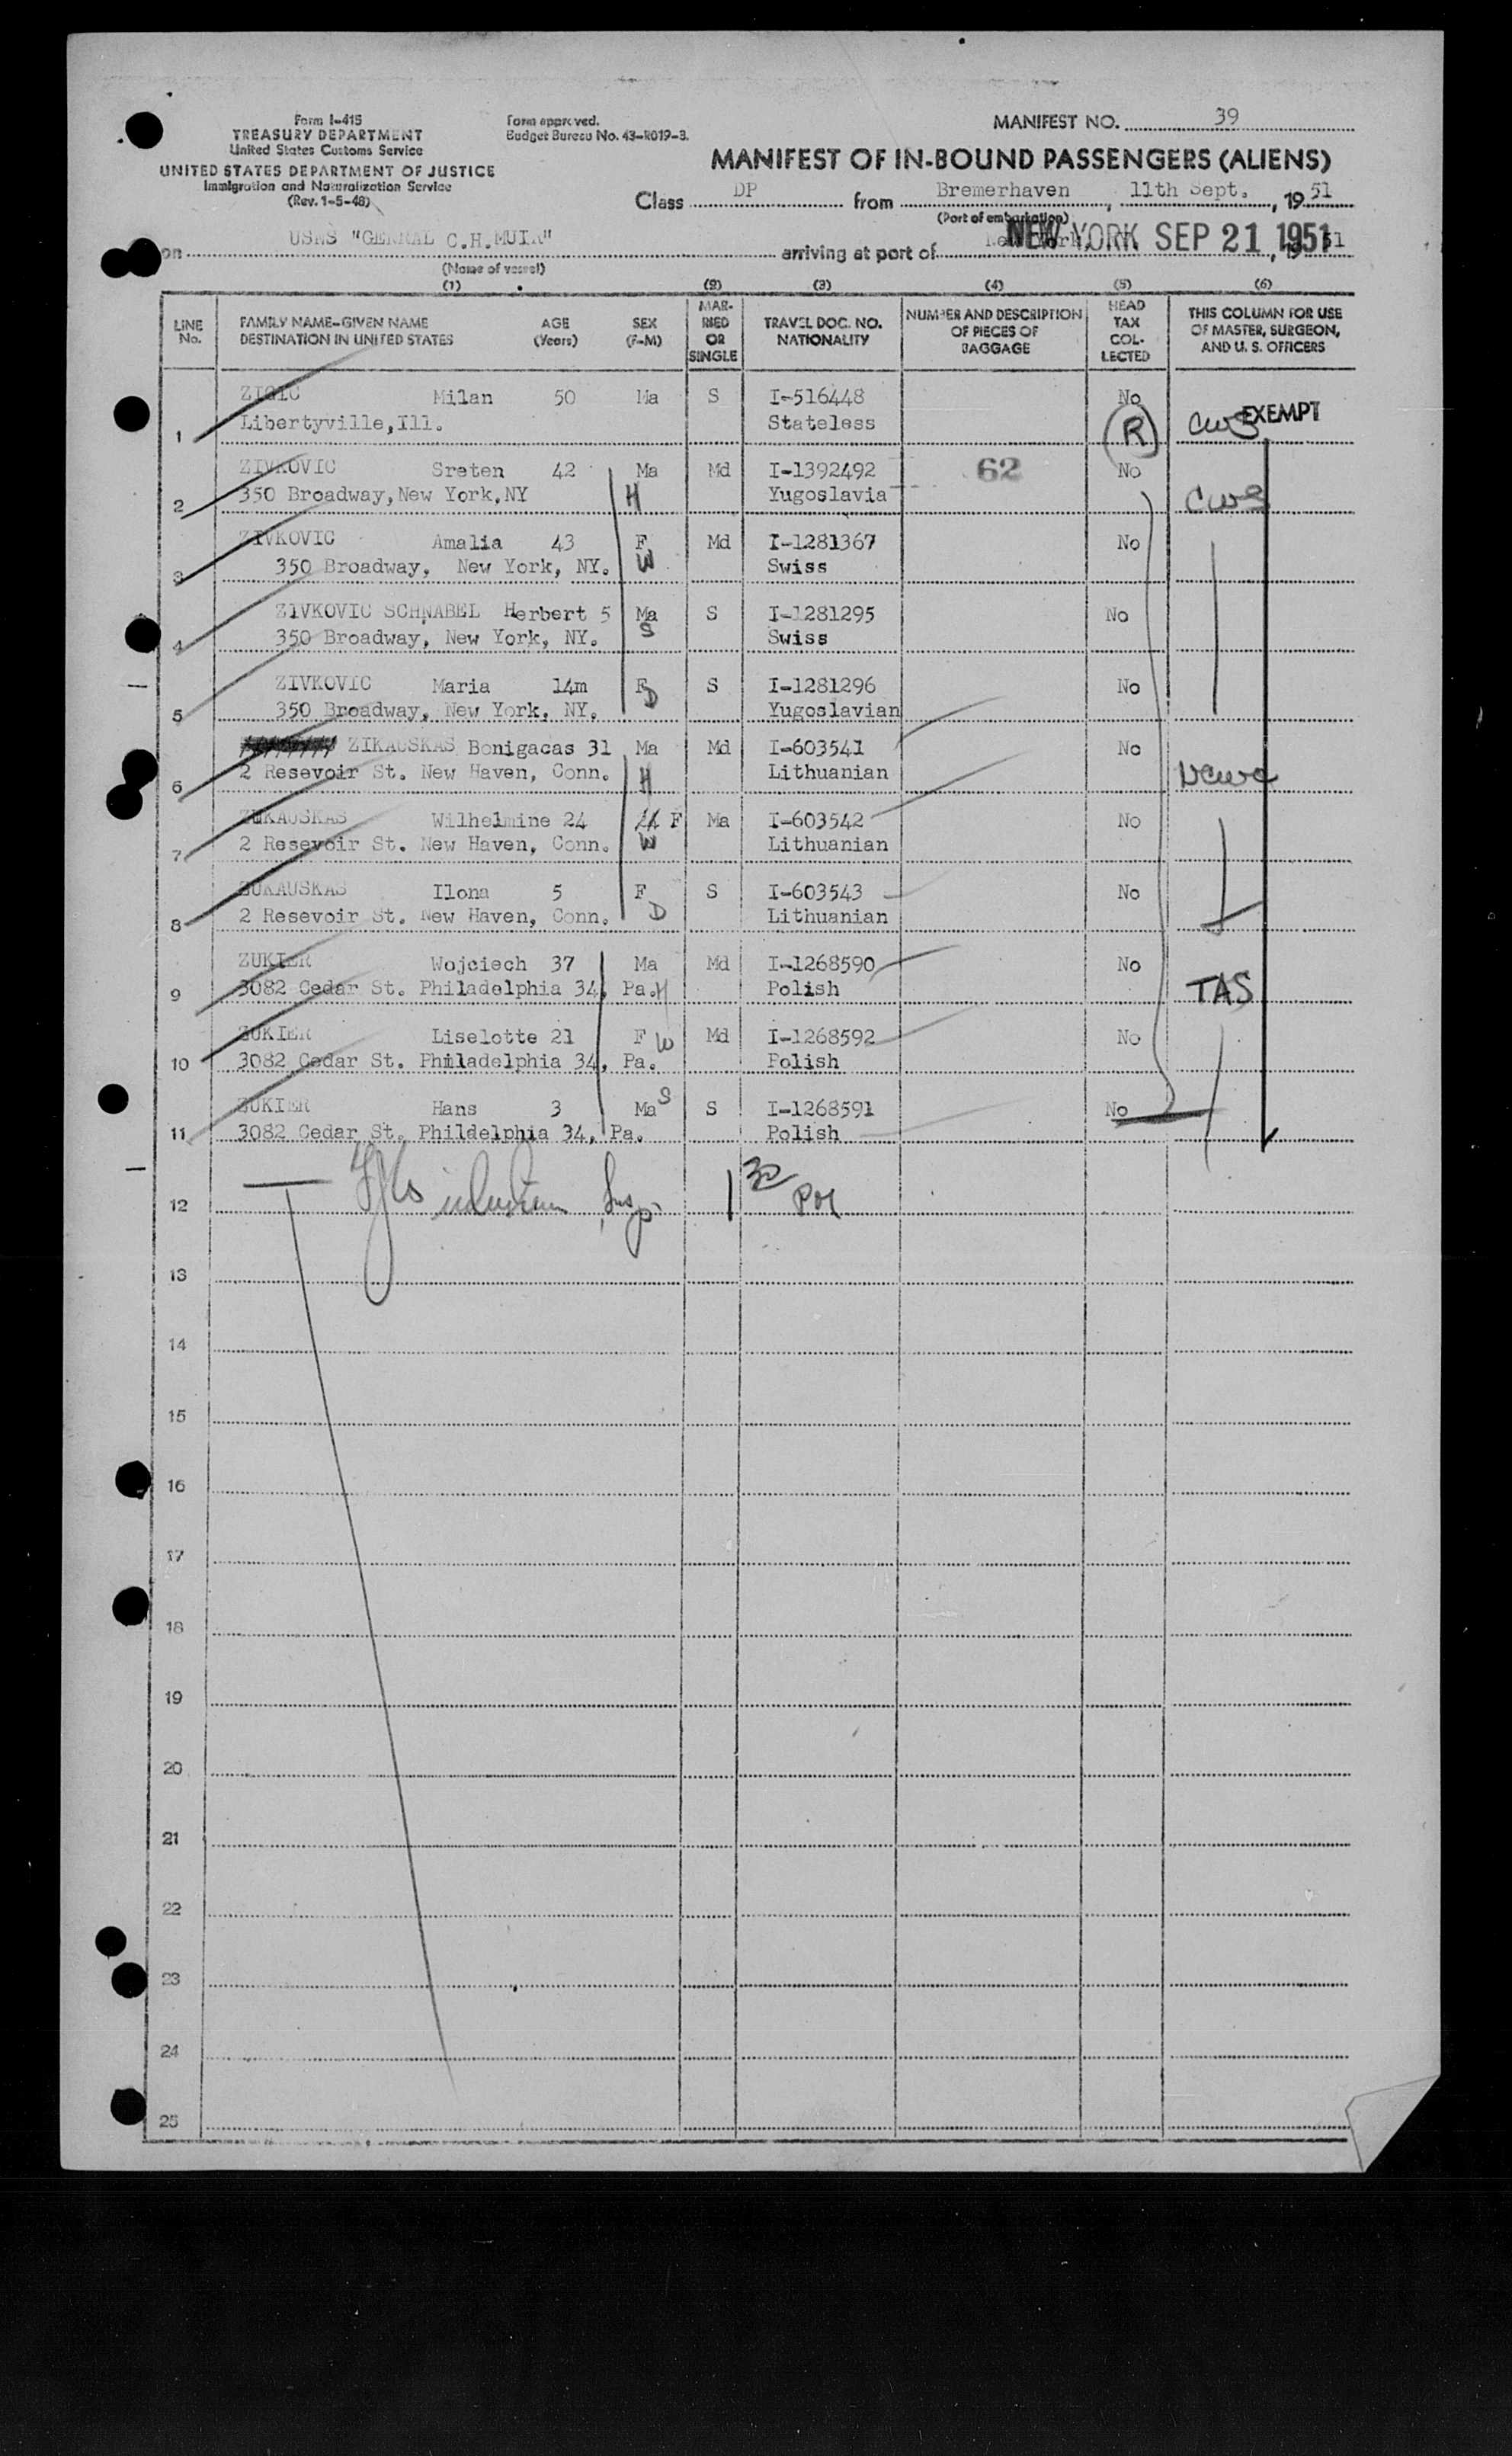 Form I-415
TREASURY DEPARTMENT
United States Customs Service
UNITED STATES DEPARTMENT OF JUSTICE
Immigration and Naturalization Service
(Rev. 1-5-48)
Form approved.
Budget Bureau No. 43-R019-3.
MANIFEST NO. 39
MANIFEST OF IN-BOUND PASSENGERS (ALIENS)
Class DP from Bremerhaven, 11th Sept., 1951
(Port of embarkation)
on USNS "GENRAL C.H.MUIR" arriving at port of New York, 1951
NEW YORK SEP 21 1951
(Name of vessel)
(1) (2) (3) (4) (5) (6)
LINE No. FAMILY NAME-GIVEN NAME DESTINATION IN UNITED STATES AGE (Years) SEX (F-M) MAR-RIED OR SINGLE TRAVEL DOC. NO. NATIONALITY NUMBER AND DESCRIPTION OF PIECES OF BAGGAGE HEAD TAX COL-LECTED THIS COLUMN FOR USE OF MASTER, SURGEON, AND U. S. OFFICERS
ZIGIC Milan 50 Ma S I-516448 No
1 Libertyville,Ill. Stateless R CWS EXEMPT
ZIVKOVIC Sreten 42 Ma Md I-1392492 62 No
2 350 Broadway,New York,NY H Yugoslavia CWS
ZIVKOVIC Amalia 43 F Md I-1281367 No
3 350 Broadway, New York, NY. W Swiss
ZIVKOVIC SCHNABEL Herbert 5 Ma S I-1281295 No
4 350 Broadway, New York, NY. S Swiss
ZIVKOVIC Maria 14m F S I-1281296 No
5 350 Broadway, New York, NY. D Yugoslavian
ZIKAUSKAS Bonigacas 31 Ma Md I-603541 No
6 2 Resevoir St. New Haven, Conn. H Lithuanian NCWC
ZUKAUSKAS Wilhelmine 24 F Ma I-603542 No
7 2 Resevoir St. New Haven, Conn. W Lithuanian
ZUKAUSKAS Ilona 5 F S I-603543 No
8 2 Resevoir St. New Haven, Conn. D Lithuanian
ZUKIER Wojciech 37 Ma Md I-1268590 No
9 3082 Cedar St. Philadelphia 34, Pa. H Polish TAS
ZUKIER Liselotte 21 F W Md I-1268592 No
10 3082 Cedar St. Philadelphia 34, Pa. Polish
ZUKIER Hans 3 Ma S S I-1268591 No
11 3082 Cedar St. Phildelphia 34, Pa. Polish
12 Insp 1 30 PM
13
14
15
16
17
18
19
20
21
22
23
24
25